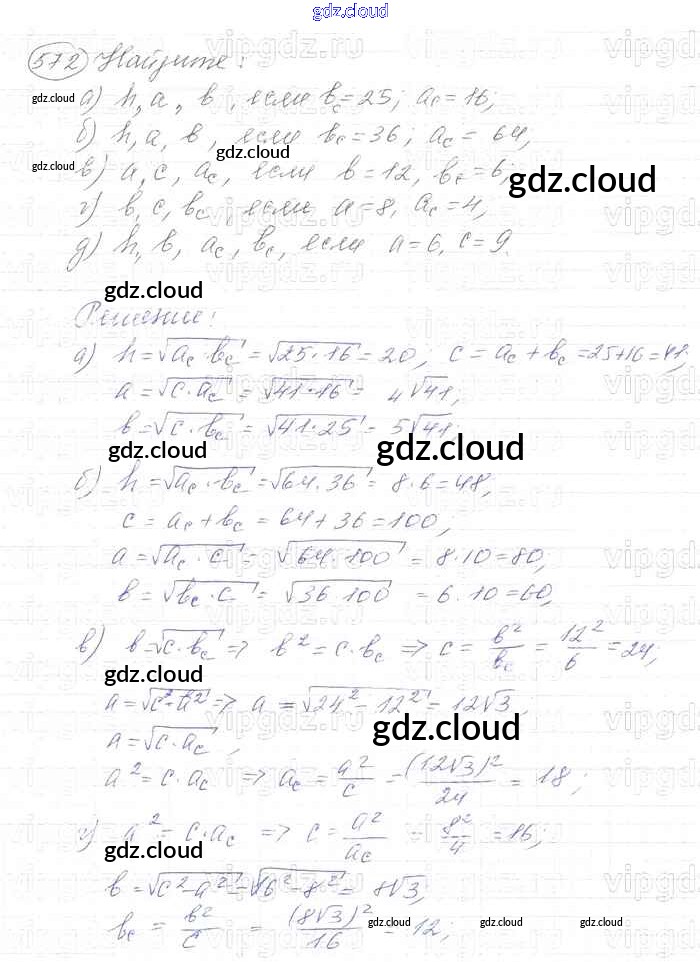 gdz.cloud
572 Найдите:
gdz.cloud а) h, a, b, если b_c = 25; a_c = 16;
б) h, a, b, если b_c = 36; a_c = 64,
gdz.cloud
gdz.cloud в) a, c, a_c, если b = 12, b_c = 6;
gdz.cloud
г) b, c, b_c, если a = 8, a_c = 4,
д) h, b, a_c, b_c, если a = 6, c = 9.
gdz.cloud
Решение:
а) h = √(a_c · b_c) = √(25 · 16) = 20, c = a_c + b_c = 25 + 16 = 41,
a = √(c · a_c) = √(41 · 16) = 4√41,
b = √(c · b_c) = √(41 · 25) = 5√41;
gdz.cloud gdz.cloud
б) h = √(a_c · b_c) = √(64 · 36) = 8 · 6 = 48,
c = a_c + b_c = 64 + 36 = 100,
a = √(a_c · c) = √(64 · 100) = 8 · 10 = 80,
b = √(b_c · c) = √(36 · 100) = 6 · 10 = 60,
в) b = √(c · b_c) => b² = c · b_c => c = b²/b_c = 12²/6 = 24;
gdz.cloud
a = √(c² - a²) => a = √(24² - 12²) = 12√3,
gdz.cloud
a = √(c · a_c),
a² = c · a_c => a_c = a²/c = (12√3)²/24 = 18;
г) a² = c · a_c => c = a²/a_c = 8²/4 = 16;
gdz.cloud
b = √(c² - a²) = √(16² - 8²) = 8√3,
b_c = b²/c = (8√3)²/16 = 12;
gdz.cloud gdz.cloud gdz.cloud